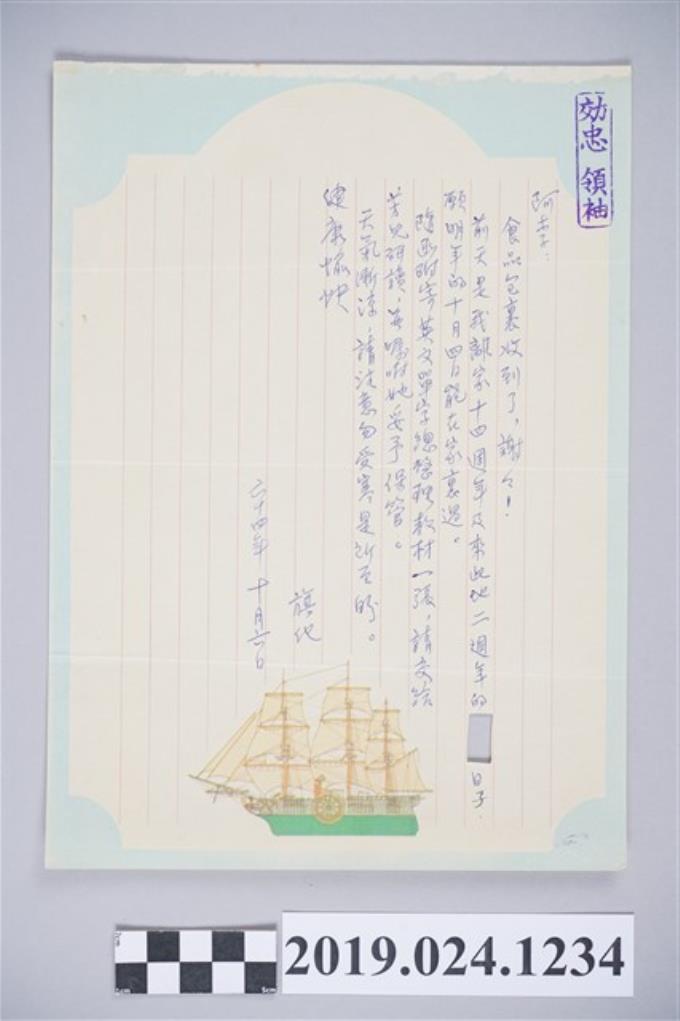 効忠領袖
阿李:
食品包裹收到了,謝々!
前天是我離家十四週年及來此地二週年的日子.
願明年的十月四日能在家裏過。
隨函附寄英文單字總整理教材一張,請交給
芳兒研讀,並囑咐她妥予保管。
天氣漸涼,請注意勿受寒是所至盼。
健康愉快
旗化
六十四年十月六日
2019.024.1234